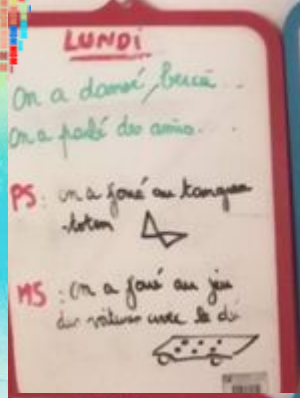 LUNDI
On a dansé, bercé...
On a parlé des amis...
PS : on a joué au tangram
-totem
MS : on a joué au jeu
des voitures avec le dé